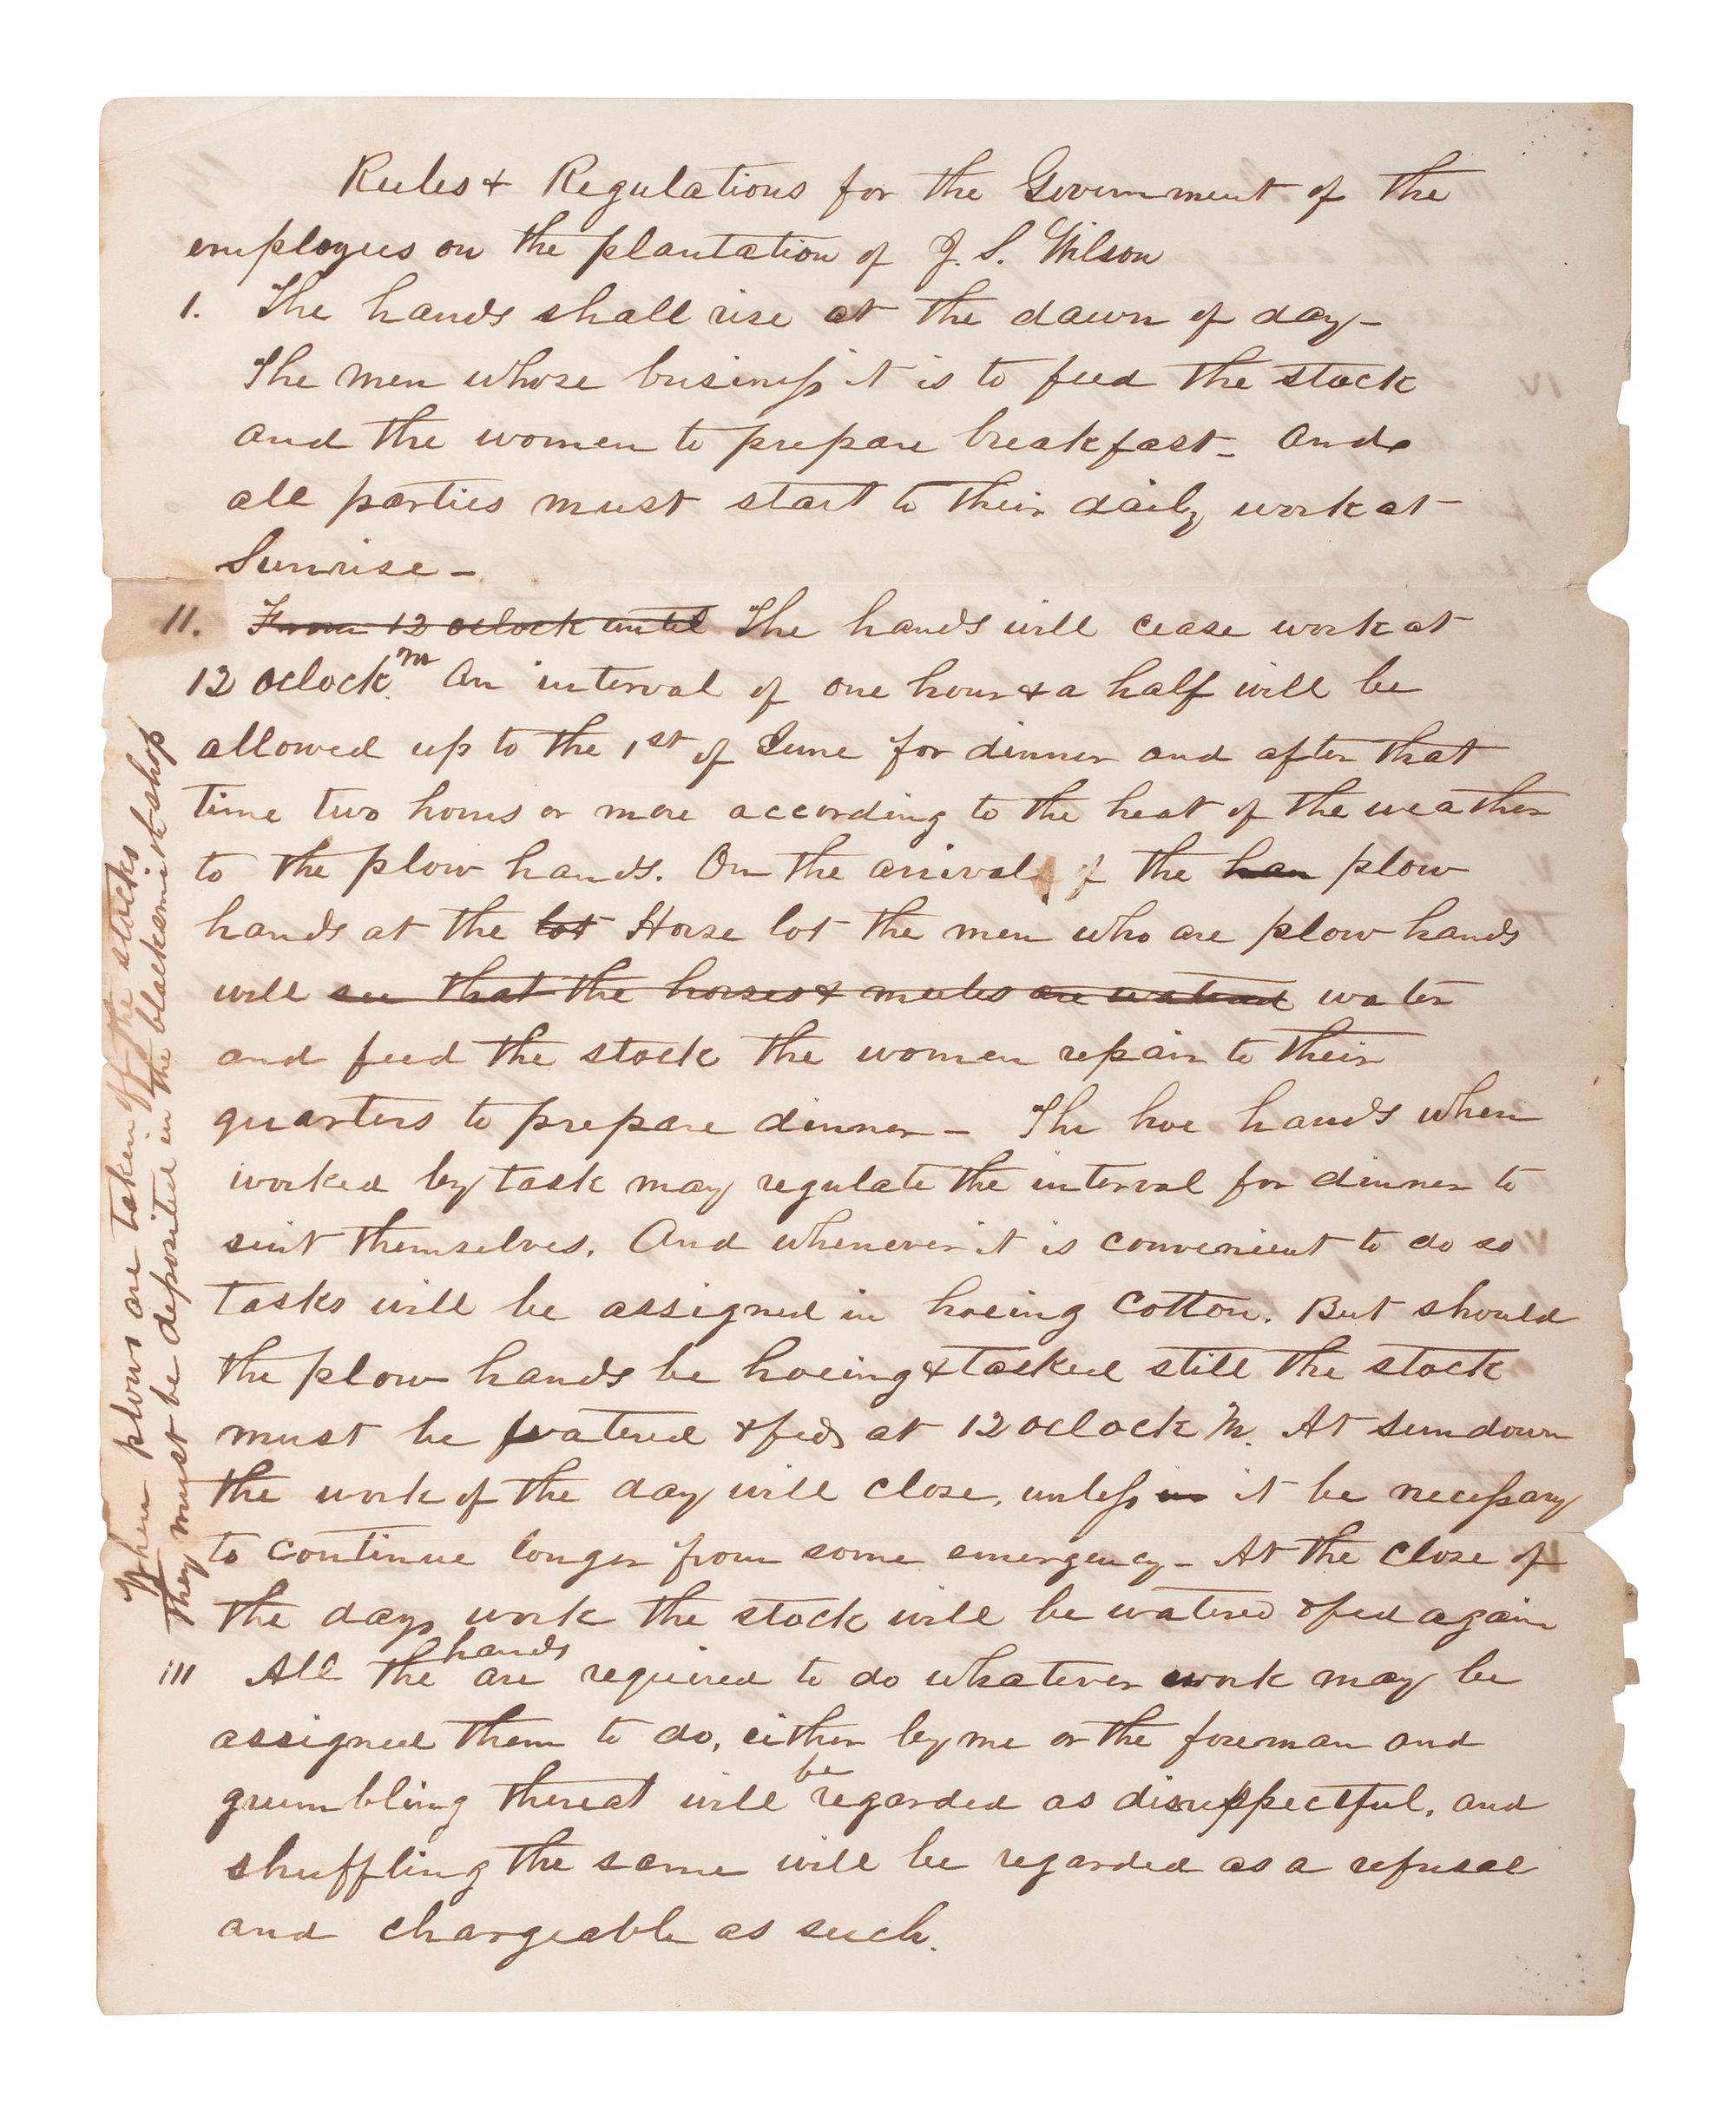 Rules & Regulations for the Government of the
employees on the plantation of J. S. Wilson
1. The hands shall rise at the dawn of day-
The men whose business it is to feed the stock
and the women to prepare breakfast- And
all parties must start to their daily work at
Sunrise-
11. From 12 oclock until The hands will cease work at
12 oclock. m An interval of one hour & a half will be
allowed up to the 1st of June for dinner and after that
time two hours or more according to the heat of the weather
to the plow hands. On the arrival of the han plow
hands at the lot Horse lot the men who are plow hands
will see that the horses & mules are watered water
and feed the stock the women repair to their
quarters to prepare dinner- The hoe hands when
worked by task may regulate the interval for dinner to
suit themselves. And whenever it is convenient to do so
tasks will be assigned in hoeing cotton. But should
the plow hands be hoeing & tasked still the stock
must be watered & fed at 12 oclock M. At sundown
the work of the day will close, unless in it be necessary
to continue longer from some emergency- At the close of
the days work the stock will be watered & fed again
111 All the hands are required to do whatever work may be
assigned them to do, either by me or the foreman and
grumbling thereat will be regarded as disrespectful, and
shuffling the same will be regarded as a refusal
and chargeable as such.
When plows are taken off the stocks
They must be deposited in the blacksmith shop